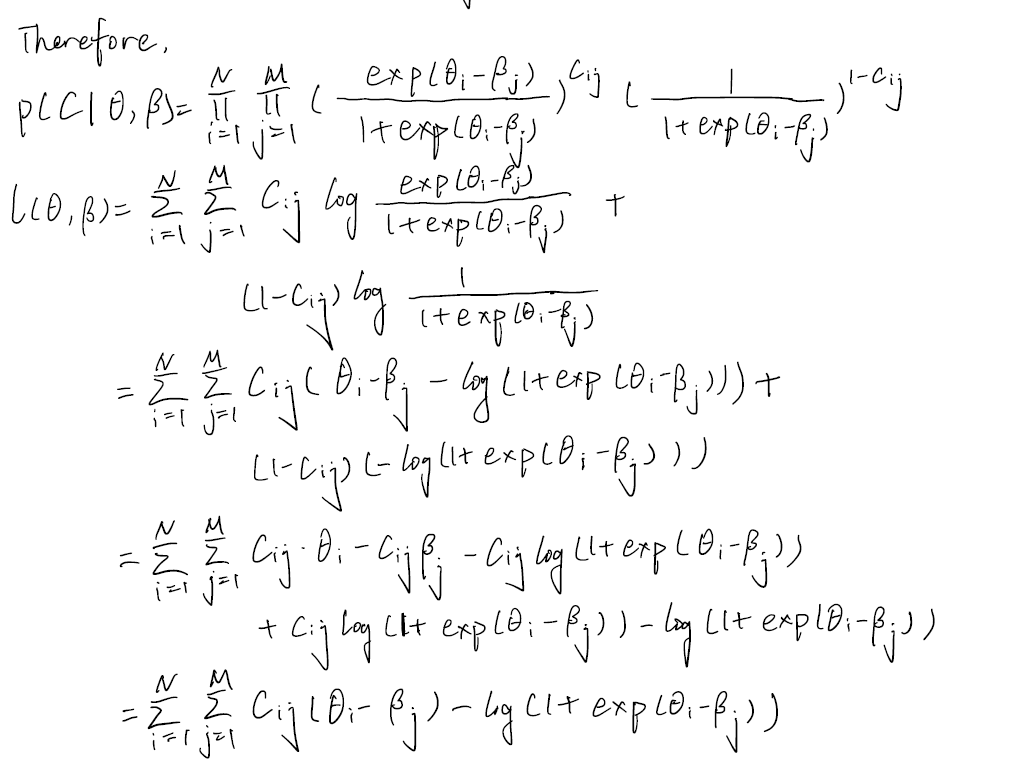 Therefore,
p(C|θ, β) = ∏_{i=1}^{N} ∏_{j=1}^{M} ( exp(θ_i-β_j) / 1+exp(θ_i-β_j) )^{C_ij} ( 1 / 1+exp(θ_i-β_j) )^{1-C_ij}
L(θ, β) = ∑_{i=1}^{N} ∑_{j=1}^{M} C_ij log exp(θ_i-β_j) / 1+exp(θ_i-β_j) +
(1-C_ij) log 1 / 1+exp(θ_i-β_j)
= ∑_{i=1}^{N} ∑_{j=1}^{M} C_ij ( θ_i-β_j - log (1+exp (θ_i-β_j))) +
(1-C_ij) (- log(1+ exp(θ_i-β_j)))
= ∑_{i=1}^{N} ∑_{j=1}^{M} C_ij · θ_i - C_ij β_j - C_ij log (1+ exp (θ_i-β_j))
+ C_ij log (1+ exp(θ_i-β_j)) - log (1+ exp(θ_i-β_j))
= ∑_{i=1}^{N} ∑_{j=1}^{M} C_ij (θ_i- β_j) - log (1+ exp(θ_i-β_j))